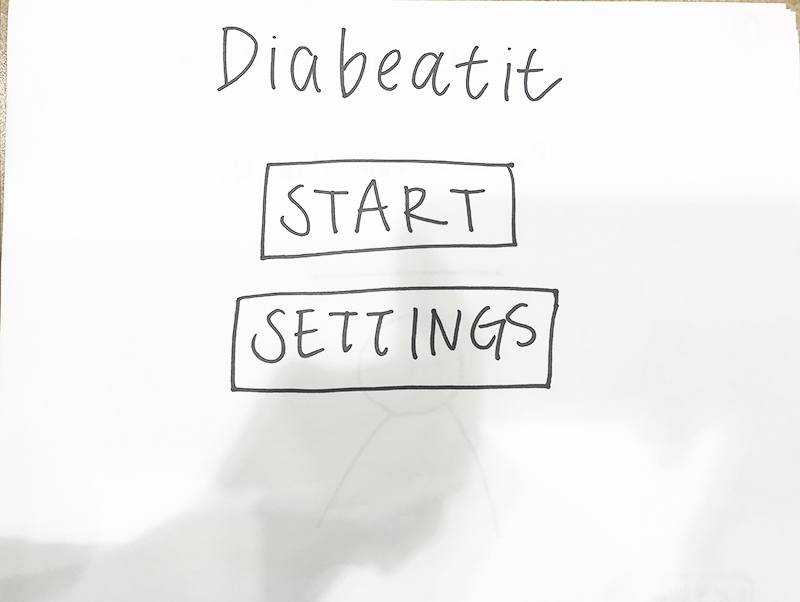 Diabeatit
START
SETTINGS